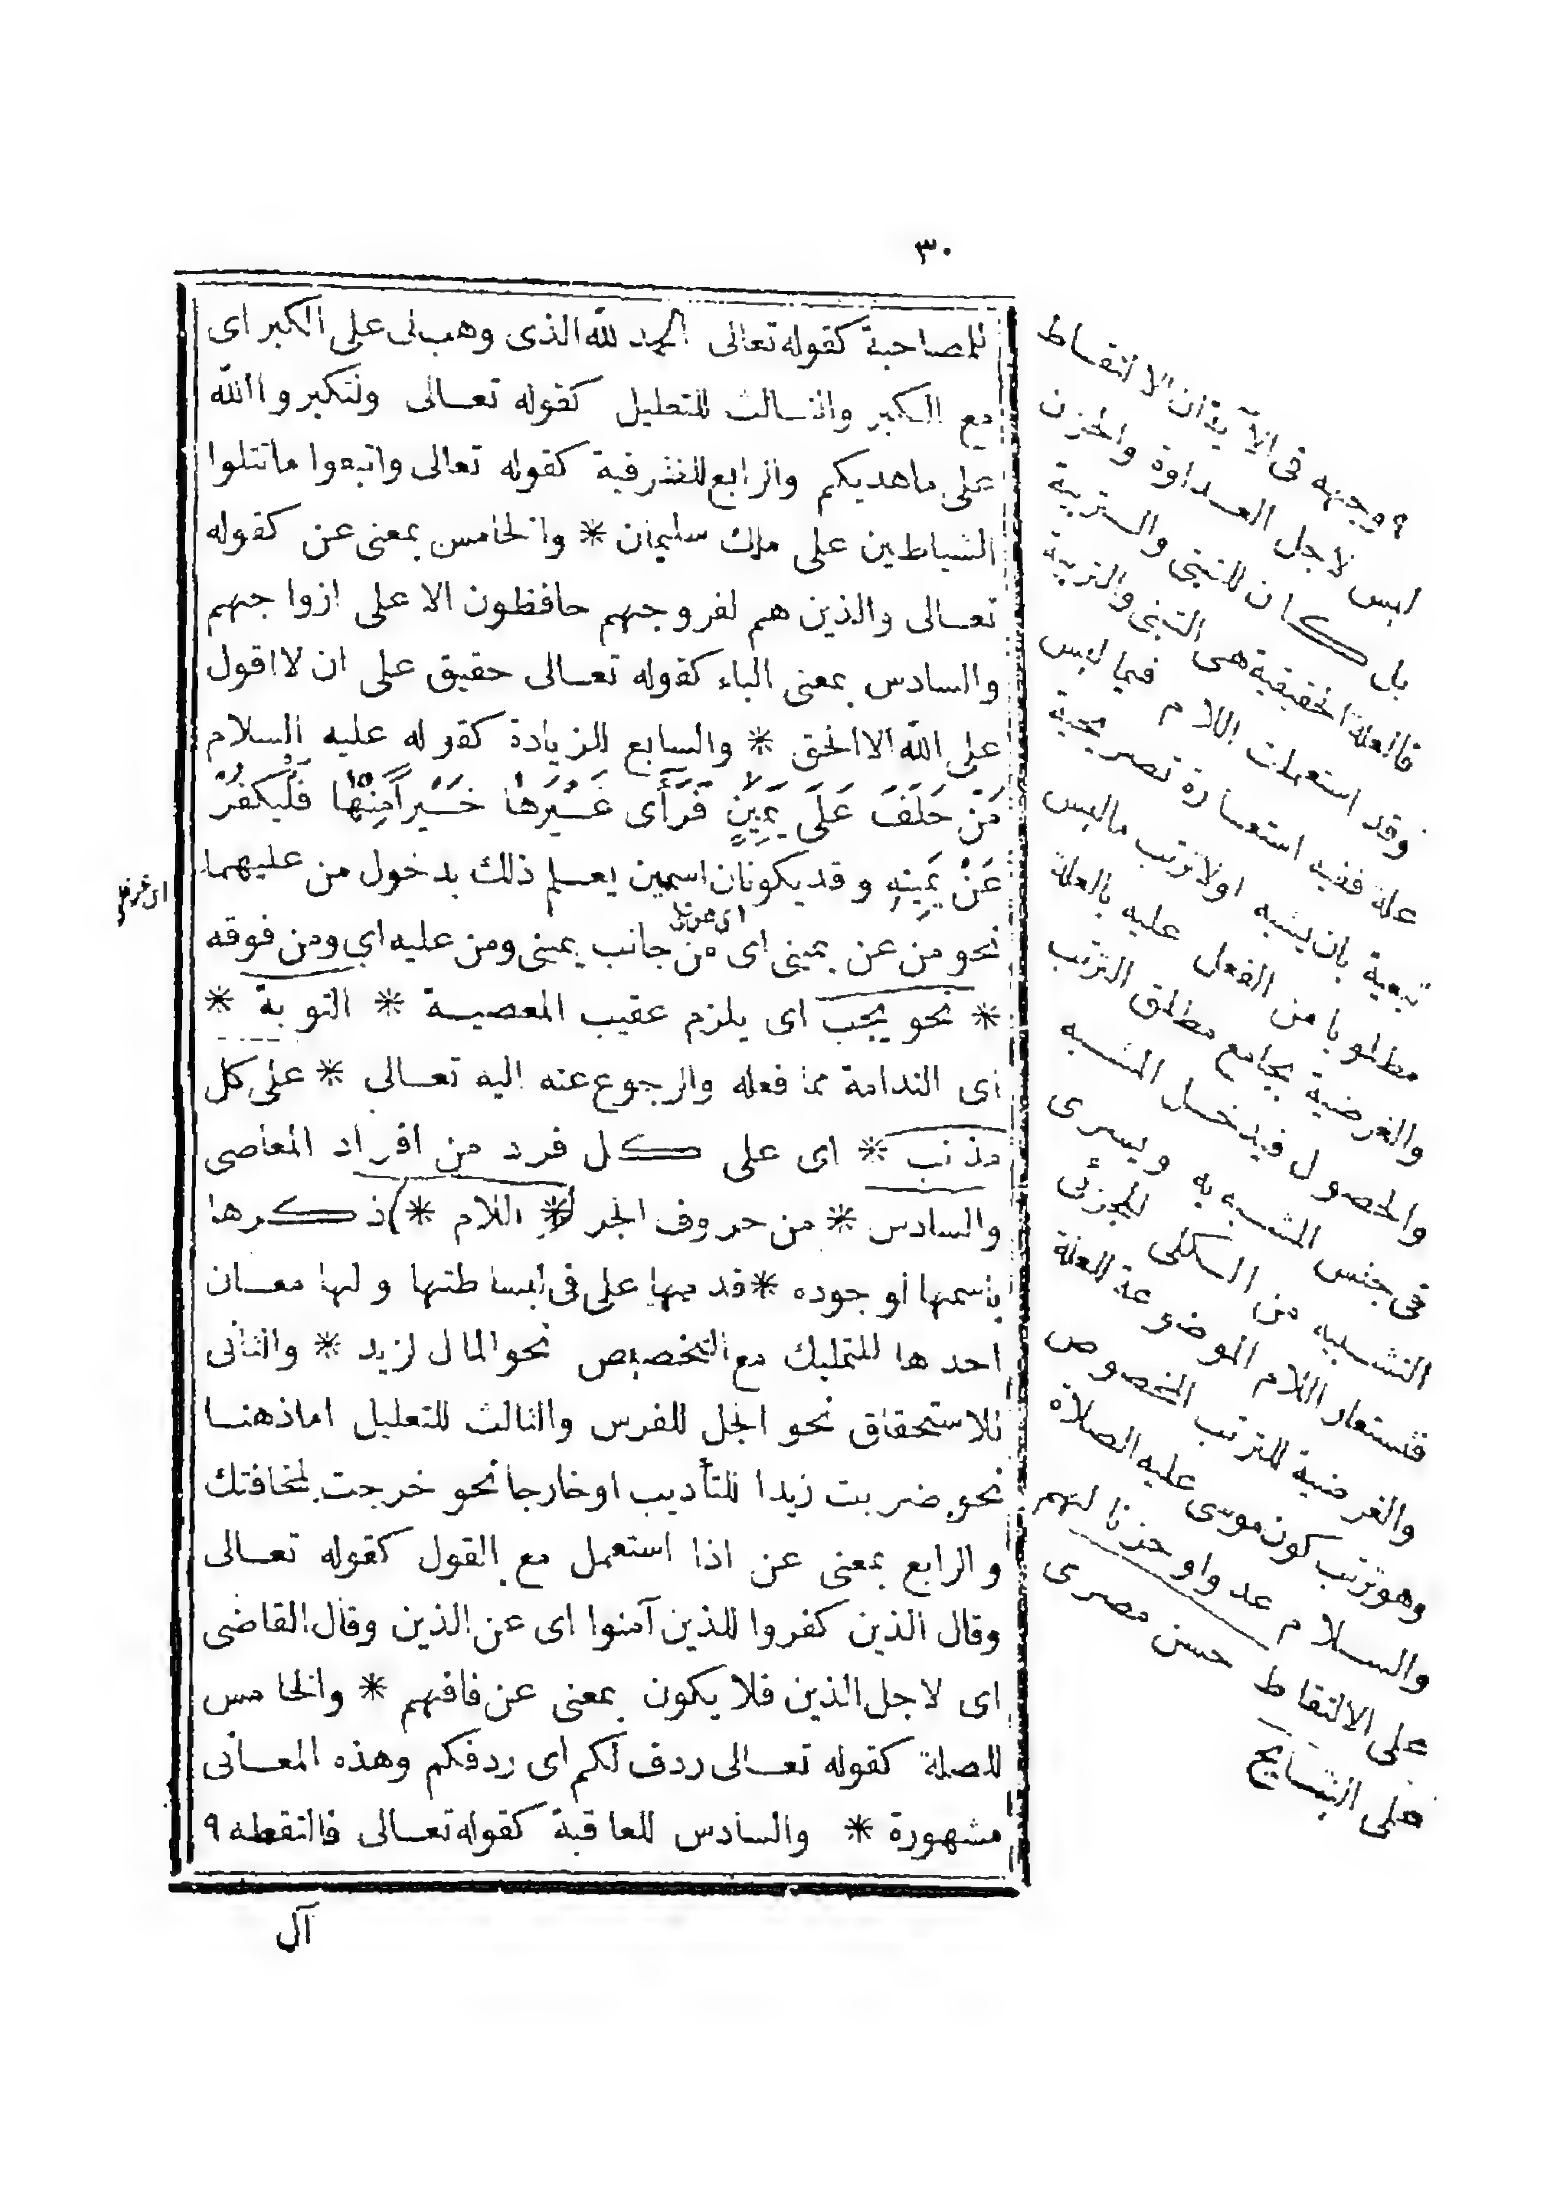 ٣٠
للمصاحبة كقوله تعالى الحمد لله الذى وهب لى على الكبر اى
مع الكبر والثالث للتعليل كقوله تعالى ولتكبروا الله
على ماهديكم والرابع للظرفية كقوله تعالى واتبعوا ماتتلوا
الشياطين على ملك سليمان * والخامس بمعنى عن كقوله
تعالى والذين هم لفروجهم حافظون الا على ازواجهم
والسادس بمعنى الباء كقوله تعالى حقيق على ان لا اقول
على الله الا الحق * والسابع للزيادة كقوله عليه السلام
مَنْ حَلَفَ عَلَى يَمِينٍ فَرَأَى غَيْرَهَا خَيْراً مِنْهَا فَلْيُكَفِّرْ
عَنْ يَمِينِهِ وقد يكونان اسمين يعلم ذلك بدخول من عليهما
نحو من عن يمينى اى من جانب يمينى ومن عليه اى ومن فوقه
* نحو يجب اى يلزم عقيب المعصية * التوبة *
اى الندامة مما فعله والرجوع عنه اليه تعالى * على كل
مذنب * اى على كل فرد من افراد المعاصى
والسادس * من حروف الجر (* اللام *) ذكرها
باسمها لوجوده * قدمها على فى لبساطتها ولها معان
احدها للتمليك مع التخصيص نحو المال لزيد * والثانى
للاستحقاق نحو الجل للفرس والثالث للتعليل اما ذهنا
نحو ضربت زيدا للتأديب او خارجا نحو خرجت لمخافتك
والرابع بمعنى عن اذا استعمل مع القول كقوله تعالى
وقال الذين كفروا للذين آمنوا اى عن الذين وقال القاضى
اى لاجل الذين فلا يكون بمعنى عن فافهم * والخامس
للصلة كقوله تعالى ردف لكم اى ردفكم وهذه المعانى
مشهورة * والسادس للعاقبة كقوله تعالى فالتقطه ٩
آل
٩ وجهه فى الآية ان الالتقاط
ليس لاجل العداوة والحزن
بل كان للتبنى والتربية
فالعلة الحقيقية هى التبنى والتربية
وقد استعملت اللام فيما ليس
علة ففيه استعارة تصريحية
تبعية بان يشبه اولا ترتب ماليس
مطلوبا من الفعل عليه بالعلة
والغرضية بجامع مطلق الترتب
والحصول فيدخل المشبه
فى جنس المشبه به ويسرى
التشبيه من الكلى للجزئى
فتستعار اللام الموضوعة للعلة
والغرضية للترتب المخصوص
وهو ترتب كون موسى عليه الصلاة
والسلام عدوا وحزنا لهم
على الالتقاط حسن مصرى
على النتايج